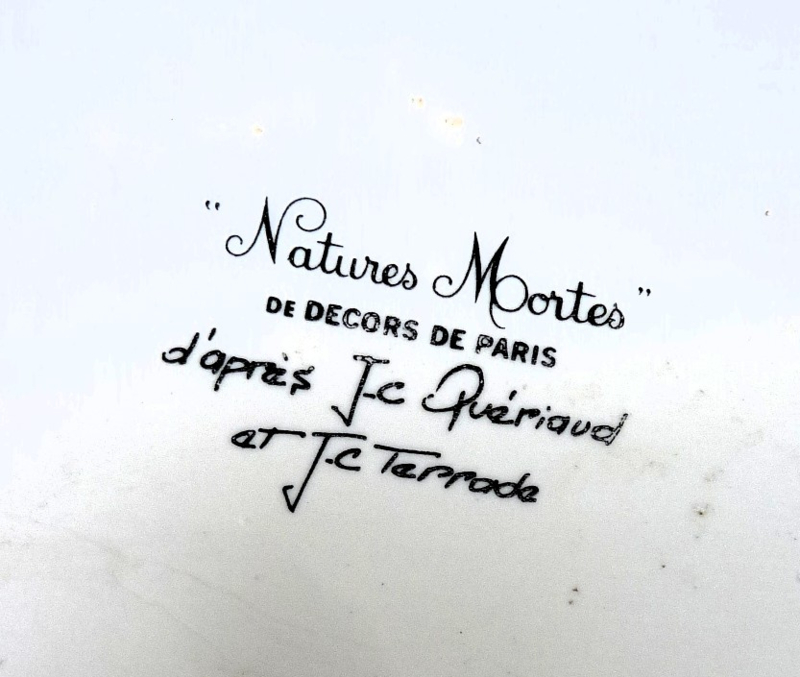 “Natures Mortes”
DE DECORS DE PARIS
d'après J-C Quériaud
et J-C Terrade